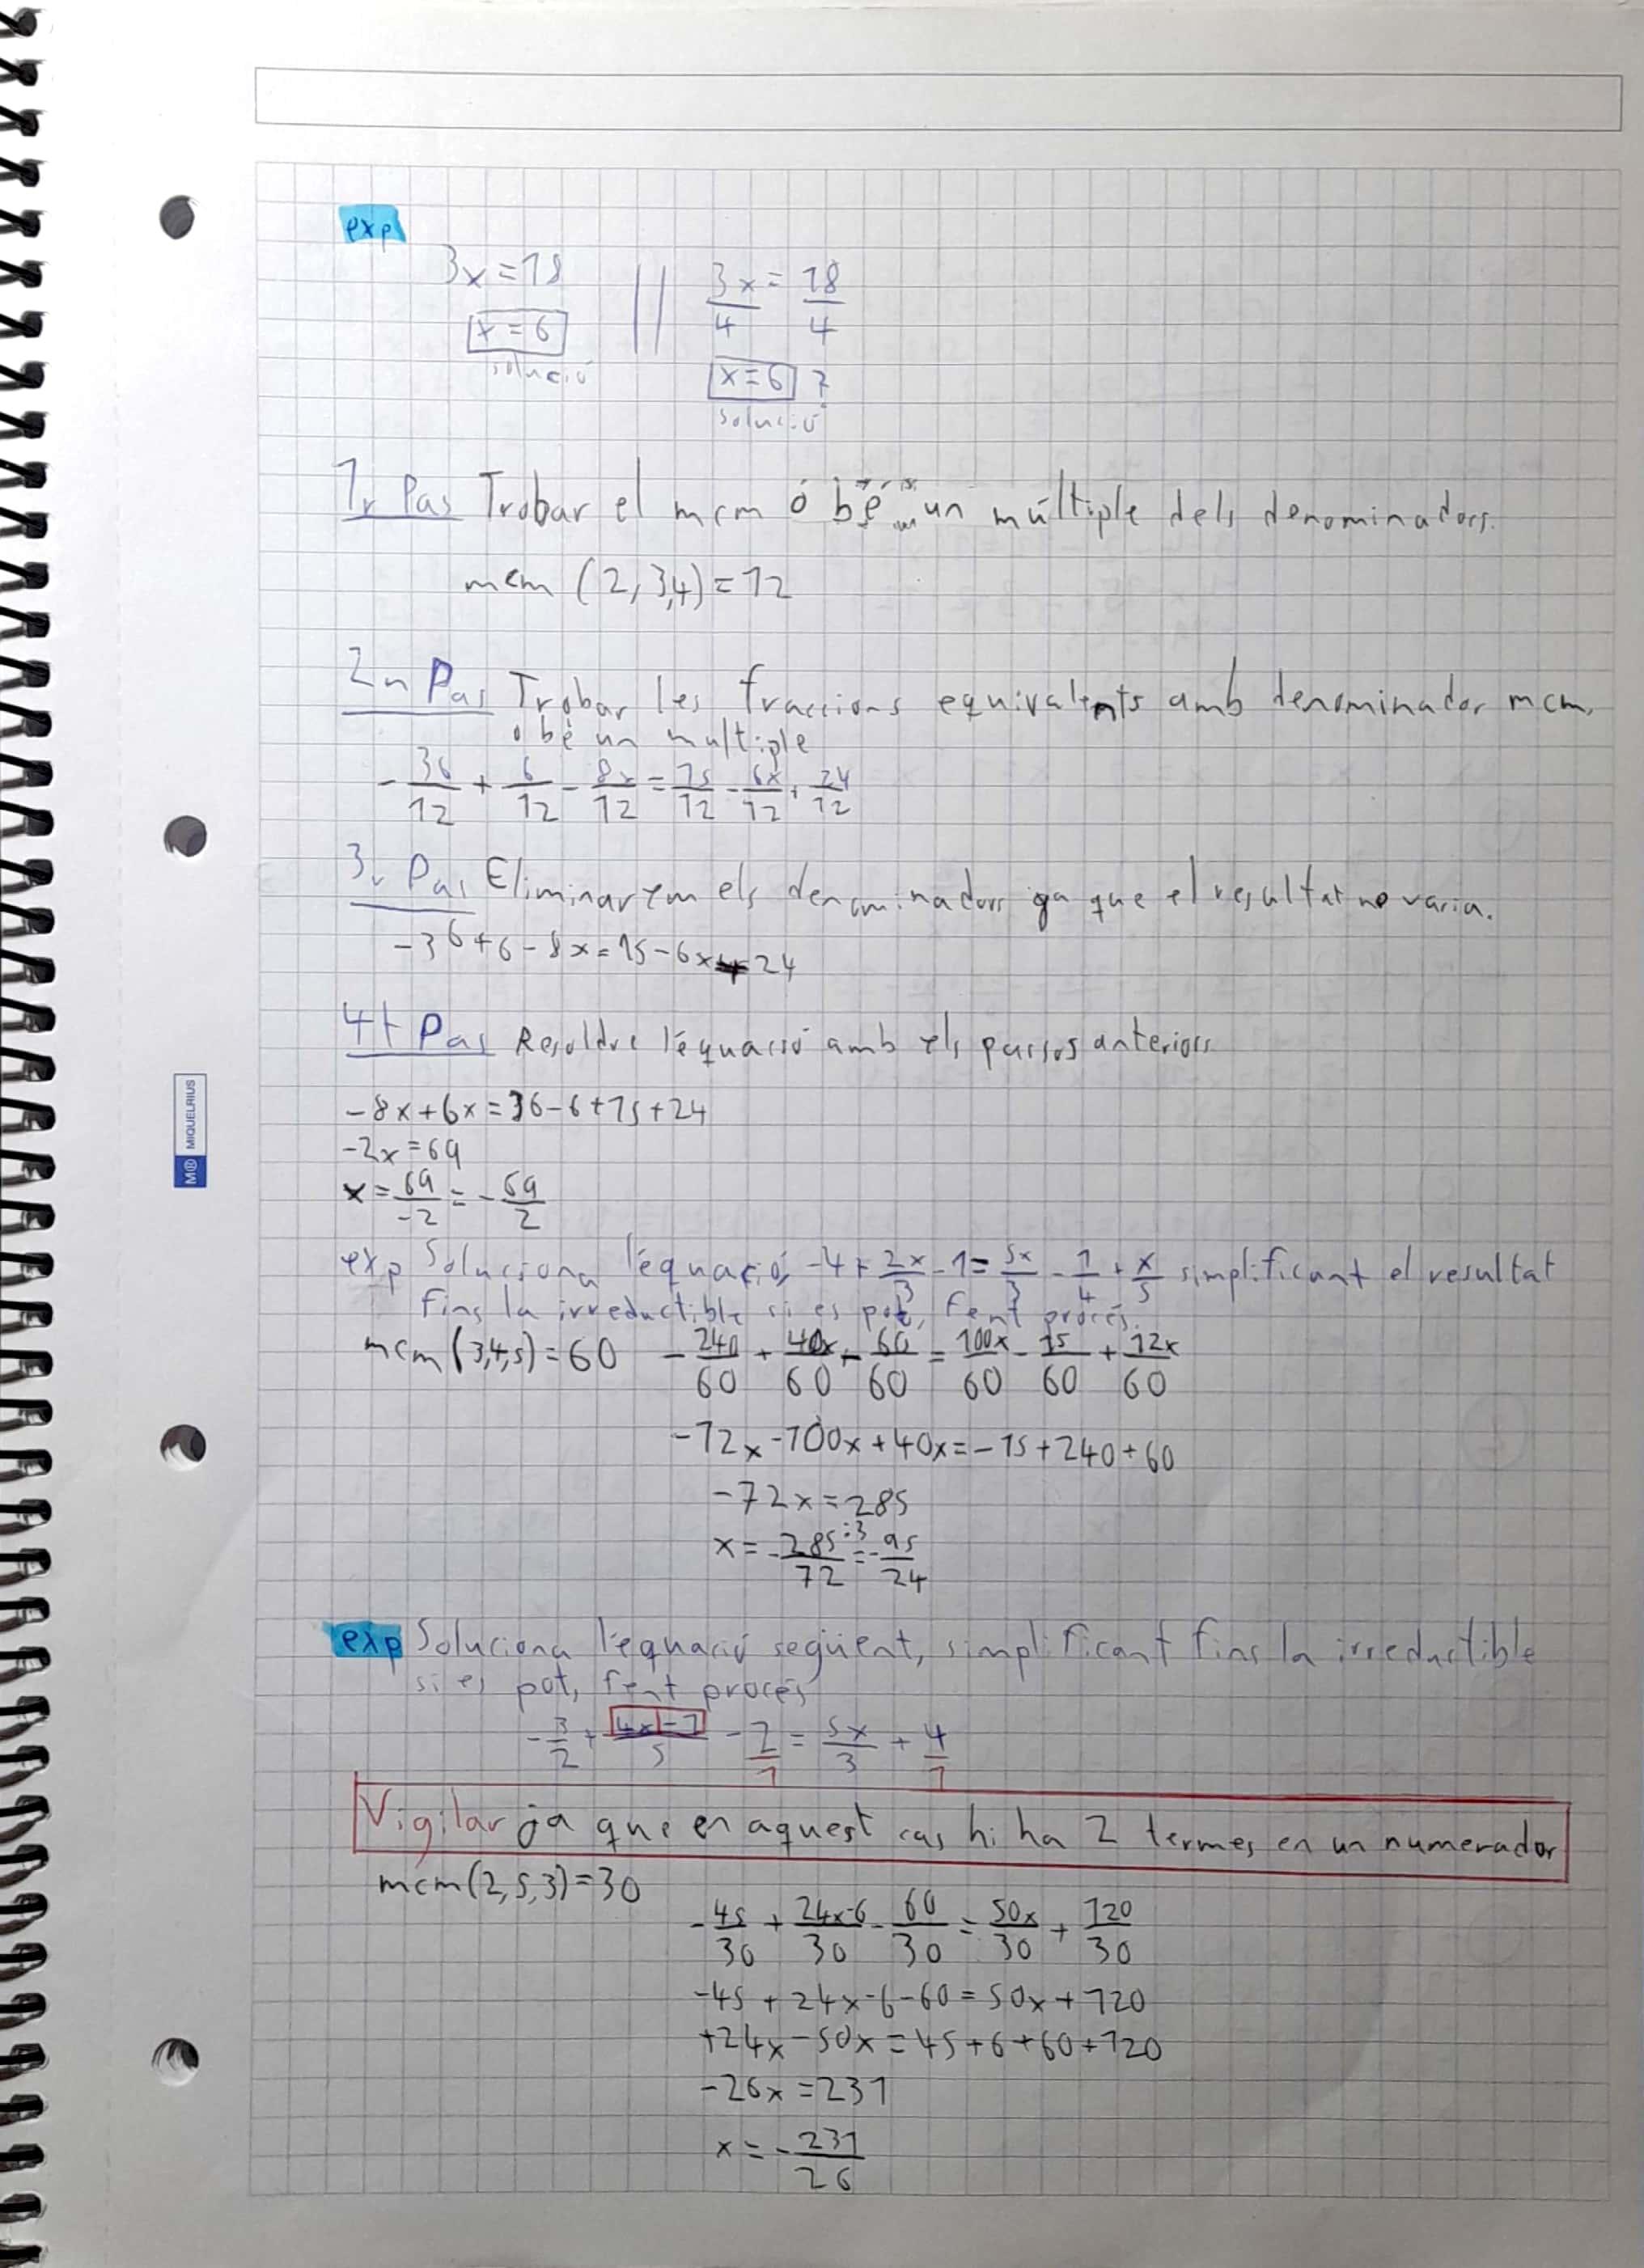 exp
3x=18 || 3x/4 = 18/4
x=6 x=6 ?
solució solució
1r Pas Trobar el mcm ó bé un múltiple dels denominadors.
mcm (2,3,4)=12
2n Pas Trobar les fraccions equivalents amb denominador mcm,
o bé un multiple
-36/12 + 6/12 - 8x/12 = 15/12 - 6x/12 + 24/12
3r Pas Eliminarem els denominadors ja que el resultat no varia.
-36+6-8x=15-6x+24
4t Pas Resoldre l'equació amb els passos anteriors
-8x+6x=36-6+15+24
-2x=69
x=69/-2=-69/2
exp Soluciona l'equació, -4+2x/3-1=5x/3-1/4+x/5 simplificant el resultat
fins la irreductible si es pot, fent procés.
mcm(3,4,5)=60 -240/60+40x/60-60/60=100x/60-15/60+12x/60
-12x-100x+40x=-15+240+60
-72x=285
x=-285/72 :3 =-95/24
exp Soluciona l'equació següent, simplificant fins la irreductible
si es pot, fent procés
-3/2+4x-1/5-2/1=5x/3+4/1
Vigilar ja que en aquest cas hi ha 2 termes en un numerador
mcm(2,5,3)=30
-45/30+24x-6/30-60/30=50x/30+120/30
-45+24x-6-60=50x+120
+24x-50x=45+6+60+120
-26x=231
x=-231/26
M® MIQUELRIUS